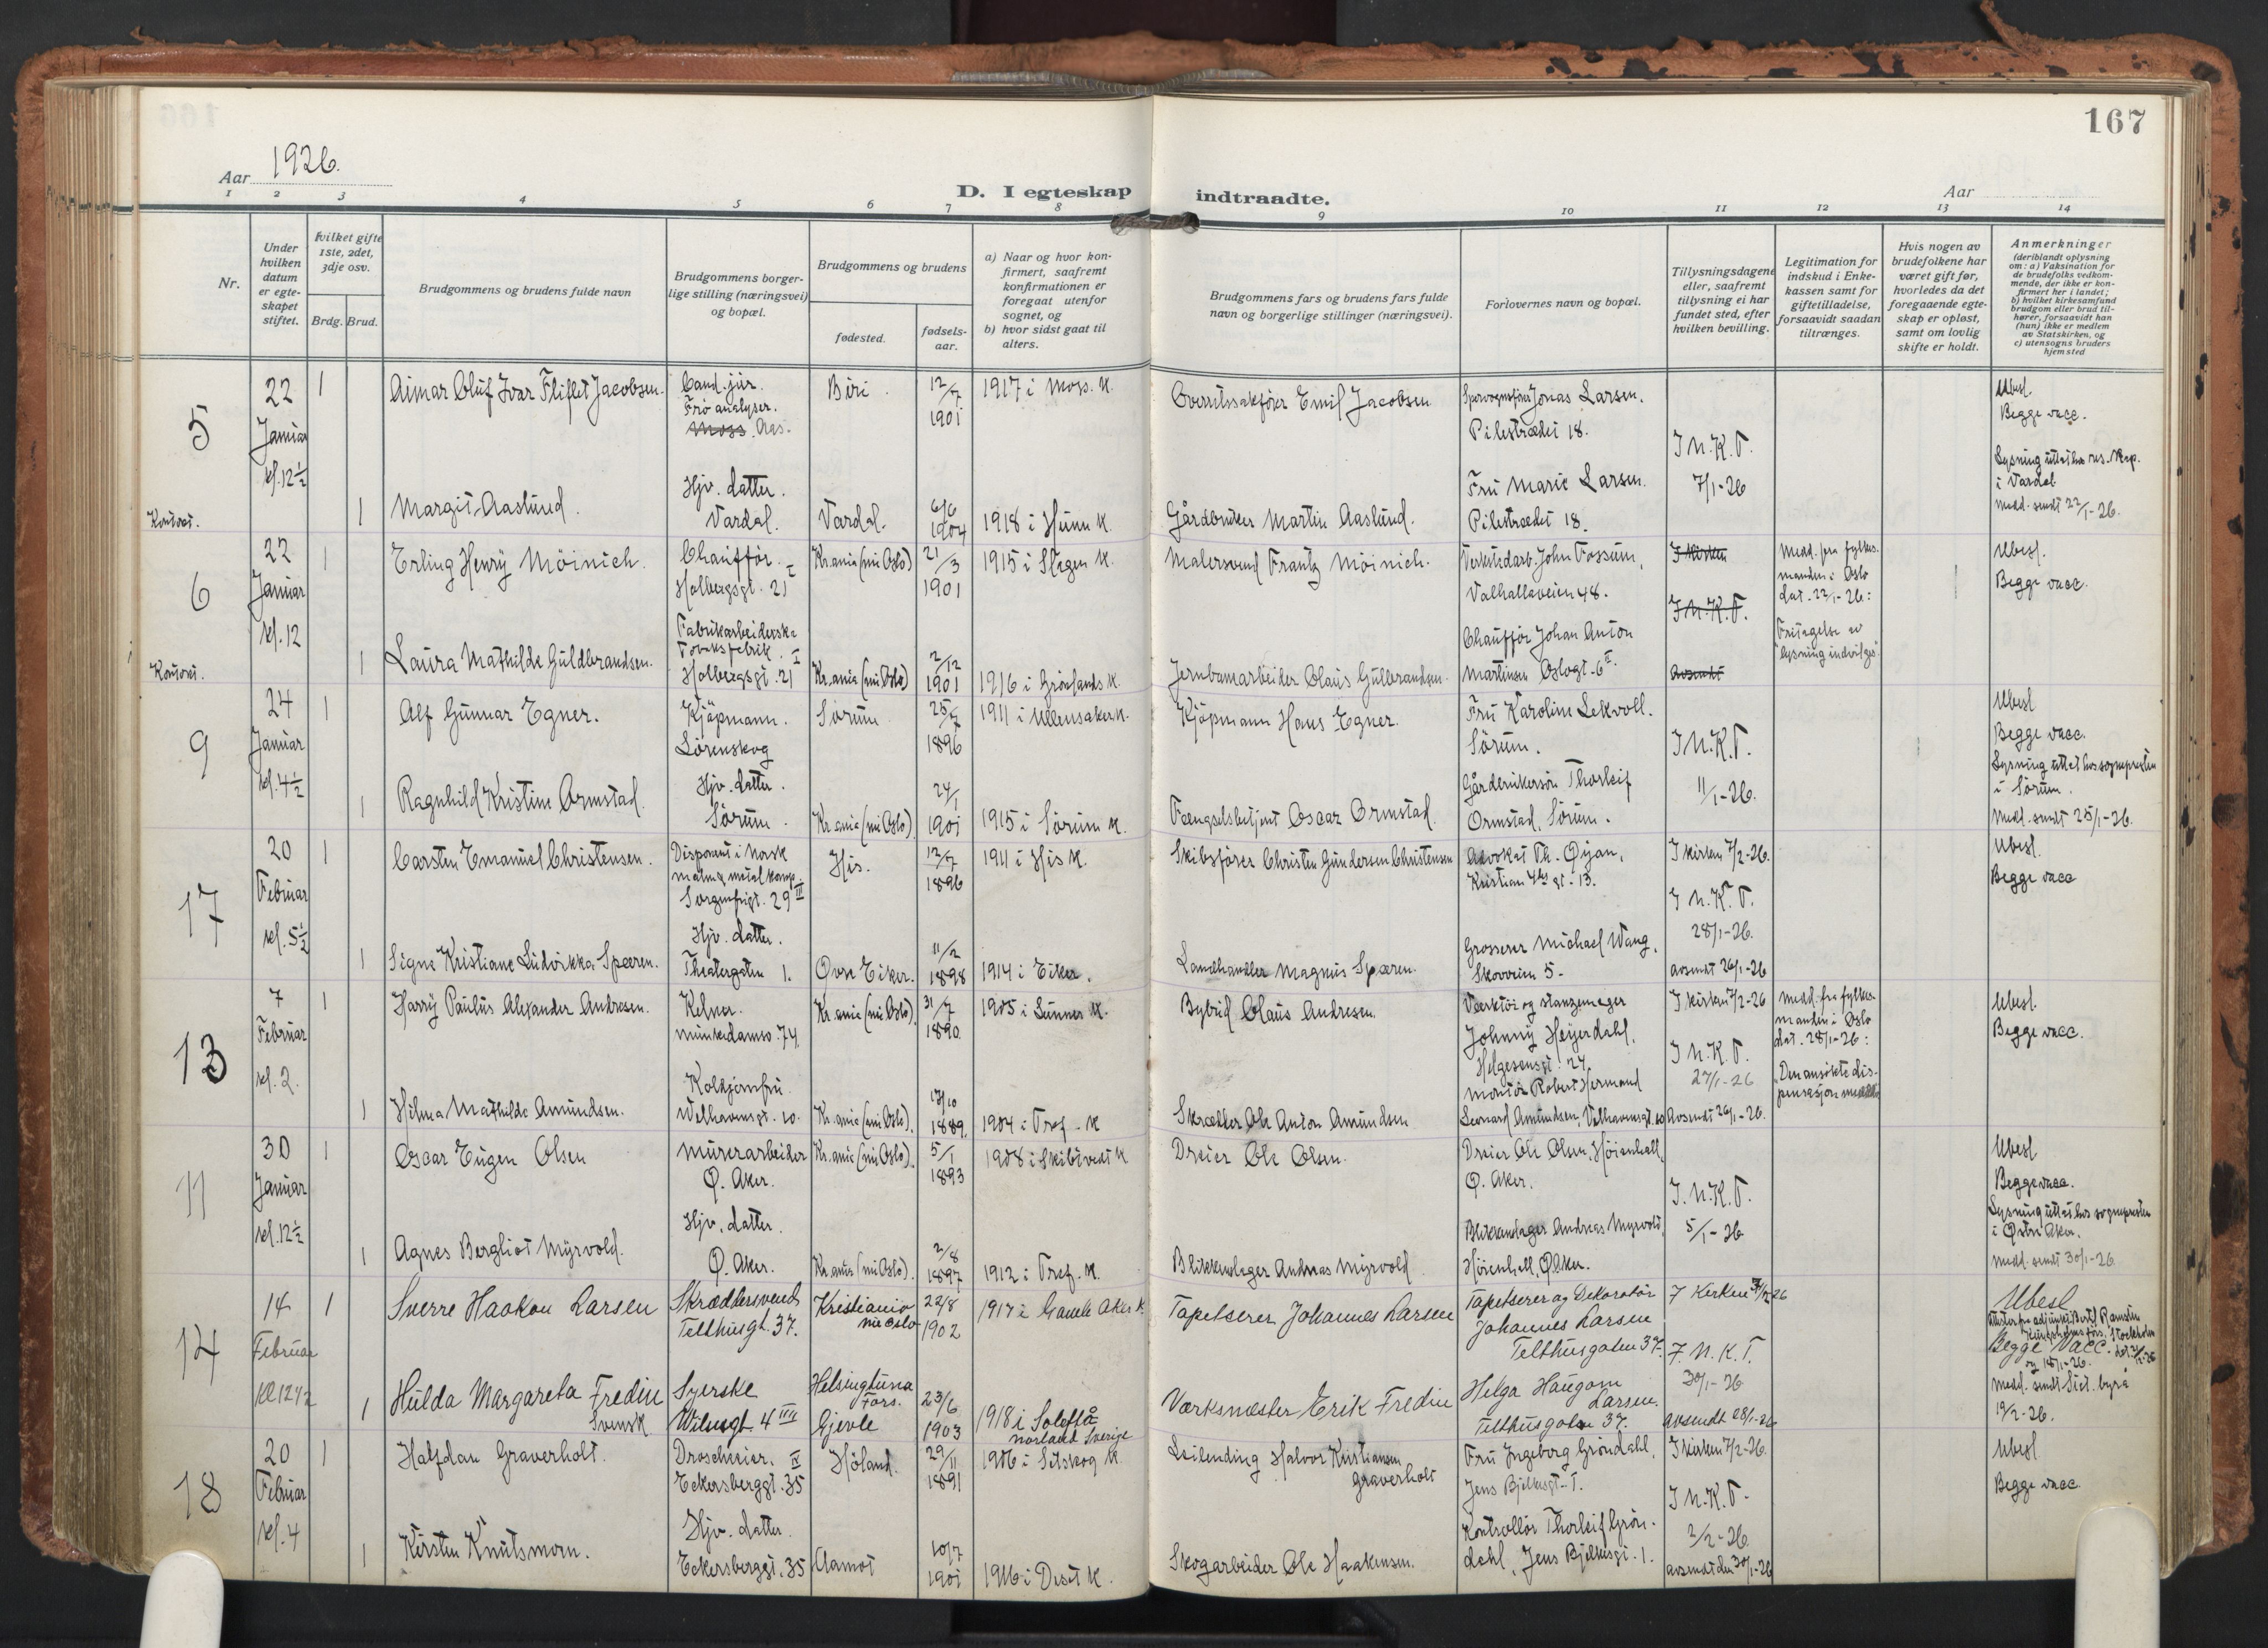 167
Aar 1926.
D. I egteskap indtraadte.
Aar
1 2 3 4 5 6 7 8 9 10 11 12 13 14
Nr.
Under hvilken datum er egteskapet stiftet.
Hvilket gifte 1ste, 2det, 3dje osv.
Brdg. Brud.
Brudgommens og brudens fulde navn
Brudgommens borgerlige stilling (næringsvei) og bopæl.
Brudgommens og brudens
fødested.
fødselsaar.
a) Naar og hvor konfirmert, saafremt konfirmationen er foregaat utenfor sognet, og
b) hvor sidst gaat til alters.
Brudgommens fars og brudens fars fulde navn og borgerlige stillinger (næringsvei).
Forlovernes navn og bopæl.
Tillysningsdagene eller, saafremt tillysning ei har fundet sted, efter hvilken bevilling.
Legitimation for indskud i Enkekassen samt for giftetilladelse, forsaavidt saadan tiltrænges.
Hvis nogen av brudefolkene har været gift før, hvorledes da det foregaaende egteskap er opløst, samt om lovlig skifte er holdt.
Anmerkninger
(deriblandt oplysning om: a) Vaksination for de brudefolks vedkommende, der ikke er konfirmert her i landet;
b) hvilket kirkesamfund brudgom eller brud tilhører, forsaavidt han (hun) ikke er medlem av Statskirken, og
c) utensogns bruders hjemsted
5
22 Januar kl. 12½
1 Aimar Oluf Ivar Fliflet Jacobsen.
Cand. jur. Frø analyser. Moss. Aas.
Biri 12/7 1901
1917 i Moss. K.
Overretssakfører Emil Jacobsen
Jonas Larsen. Pilestrædet 18.
I M.K.T. 7/1-26
Ubesl.
Begge vacc.
i Vardal
medd. sendt 22/1-26.
Kontoret.
1 Margit Aaslund.
Hjv. datter. Vardal.
Vardal. 6/6 1904
1918 i Hunn K.
Gårdbruker Martin Aaslund.
Fru Marie Larsen. Pilestrædet 18.
6
22 Januar kl. 12
1 Erling Henry Möinich.
Chauffør. Holbergsgt. 21 I
Kr.ania (nu Oslo) 21/3 1901
1915 i Slagen K.
Malersvend Frantz Möinich.
Verkstedarb. John Fossum, Valhallaveien 48.
I kirken
I M.K.T.
Avsendt
Medd. fra fylkesmanden i Oslo dat. 22/1-26:
Fritagelse av lysning indvilges.
Ubesl.
Begge vacc.
Kontoret.
1 Laura Mathilde Guldbrandsen.
Fabrikarbeiderske Tobaksfabrik. Holbergsgt. 21 I
Kr.ania (nu Oslo) 2/12 1901
1916 i Grønlands K.
Jernbanearbeider Olaus Gulbrandsen.
Chauffør Johan Anton Martinsen Oslogt. 6 II.
9
24 Januar kl. 4½
1 Alf Gunnar Egner.
Kjøpmann. Lörenskog
Sørum 25/7 1896
1911 i Ullensaker K.
Kjøpmann Hans Egner.
Fru Karoline Lekvoll. Sörum.
I M.K.T. 11/1-26.
Ubesl
Begge vacc.
Lysning uttat hos sognepresten i Sörum.
Medd. sendt 25/1-26.
1 Ragnhild Kristine Ormstad.
Hjv. datter. Sørum.
Kr.ania (nu Oslo). 24/1 1901
1915 i Sörum K.
Fængselsbetjent Oscar Ormstad.
Gårdbrukersön Thorleif Ormstad, Sörum.
17
20 Februar kl. 5½
1 Carsten Emanuel Christensen.
Disponent i Norsk malm & metal komp. Sorgenfrigt. 29 III
His. 12/7 1896
1911 i His K.
Skibsfører Christen Gundersen Christensen
Advokat Th. Øijan, Kristian 4des gt. 13.
I kirken 7/2-26.
I M.K.T. 28/1-26.
avsendt 26/1-26
Ubesl.
Begge vacc
1 Signe Kristiane Ludvikka Spæren.
Hjv. datter. Theatergaten 1.
Øvre Eiker. 11/2 1898
1914 i Eiker.
Landhandler Magnus Spæren.
Grosserer Michael Wang, Skovveien 5.
13
7 Februar kl. 2.
1 Harry Paulus Alexander Andresen.
Kelner. Munkedamsv. 74.
Kr.ania (nu Oslo). 31/7 1890
1905 i Sunnes K.
Bybud Olaus Andresen.
Værktøi og stanzemager Johnny Heyerdahl, Helgesensgt. 27
I kirken 7/2-26
I M.K.T. 27/1-26
Avsendt 26/1-26.
Medd. fra fylkesmanden i Oslo dat. 28/1-26:
"Den ansøkte dispensasjon meddeles
Ubesl.
Begge vacc.
1 Hilma Mathilde Amundsen.
Koldjomfru. Welhavensgt. 10.
Kr.ania (nu Oslo). 17/10 1889.
1904 i Tref. K
Skrædder Ole Anton Amundsen
Montør Robert Hermand Leonard Amundsen, Velhavensgt. 10
11
30 Januar kl. 12½
1 Oscar Eugen Olsen
Murerarbeider Ø. Aker.
Kr.ania (nu Oslo). 5/1 1893
1908 i Skibtvedt K
Dreier Ole Olsen.
Dreier Ole Olsen, Höienhall, Ø. Aker.
I. M.K.T. 5/1-26
Ubesl
Begge vacc.
Lysning uttat hos sognepresten i Østre Aker.
medd. sendt 30/1-26.
1 Agnes Bergliot Myrvold.
Hjv. datter. Ø. Aker.
Kr.ania (nu Oslo). 2/8 1897
1912 i Tref. K.
Blikkenslager Andreas Myrvold
Blikkenslager Andreas Myrvold, Höienhall, Ø. Aker.
14
14 Februar kl 12½
1 Sverre Haakon Larsen
Skræddersvend Telthusgt. 37.
Kristiania nu Oslo 22/8 1902
1917 i Gamle Aker K.
Tapetserer Johannes Larsen
Tapetserer og Dekoratör Johannes Larsen Telthusgaten 37.
I Kirken
I M.K.T. 30/1-26
avsendt 28/1-26
Ubesl
Begge Vacc.
og 18/1-26.
medd. sendt Stat. byrå 19/2-26.
1 Hulda Margareta Fredin Svensk
Syerske Wilsesgt. 4 III
Helsingtuna Förs. Gjevle 23/6 1903
1918 i Solefteå Norland Sverige
Værksmester Erik Fredin
Helga Haugom Larsen. Telthusgaten 37.
18
20 Februar kl. 4
1 Halfdan Graverholt.
Droscheeier. IV Eckersberggt. 35
Höland. 29/11 1891
1906 i Setskog K.
Leilending Halvor Kristiansen Graverholt
Fru Ingeborg Gröndahl, Jens Bjelkesgt. 1.
I kirken 7/2-26.
I M.K.T. 2/2-26
avsendt den 30/1-26
Ubesl
Begge vacc.
1 Kirsten Knutsmoen.
Hjv. datter. Eckersberggt. 35
Aamot 10/7 1901
1916 i Deset K.
Skogarbeider Ole Haakensen.
Kontrollör Thorleif Gröndahl, Jens Bjelkesgt. 1.